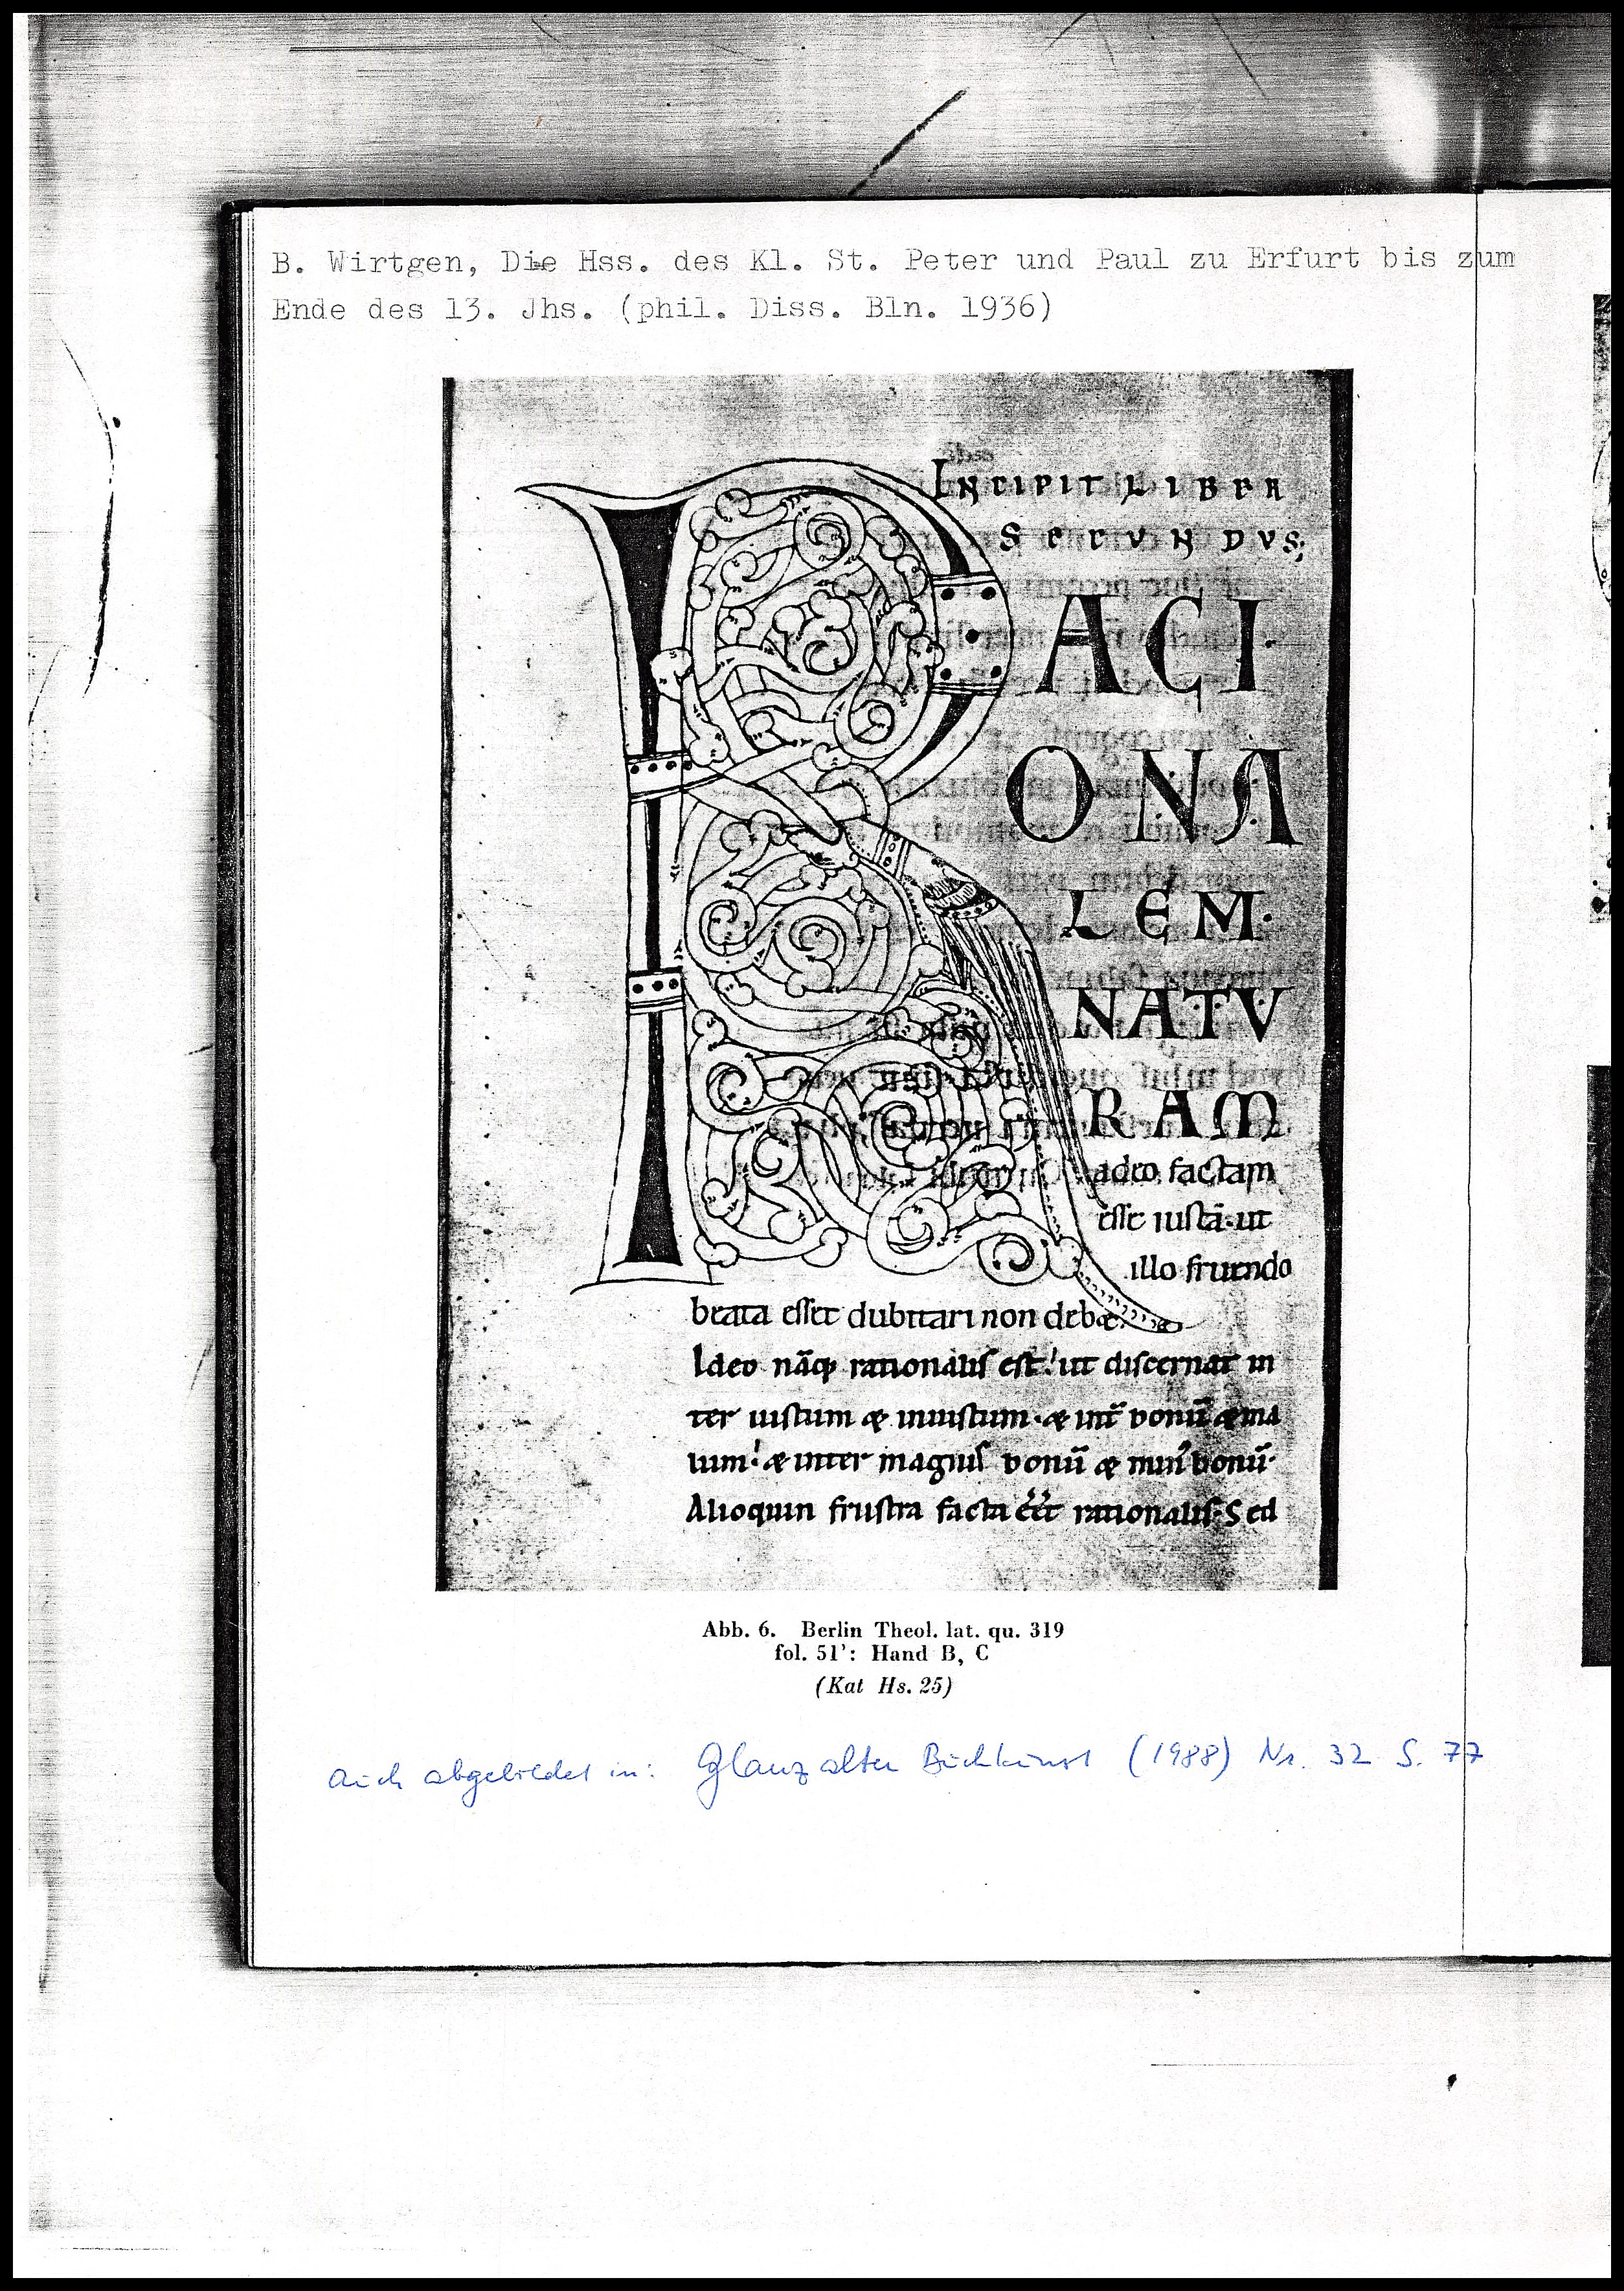 B. Wirtgen, Die Hss. des Kl. St. Peter und Paul zu Erfurt bis zum
Ende des 13. Jhs. (phil. Diss. Bln. 1936)
INCIPIT LIBER
SECUNDVS;
R ACI
ONA
LEM
NATV
RAM
a deo factam
esse iustā· ut
illo fruendo
beata esset dubitari non debet.
Ideo nāq; rationalis est! ut discernat in
ter iustum & iniustum· & int̄ bonū & ma
lum! & inter magnis bonū & min9 bonū·
Alioquin frustra facta eēt rationalis· Sed
Abb. 6. Berlin Theol. lat. qu. 319
fol. 51': Hand B, C
(Kat Hs. 25)
auch abgebildet in: Glanz alter Buchkunst (1988) Nr. 32 S. 77